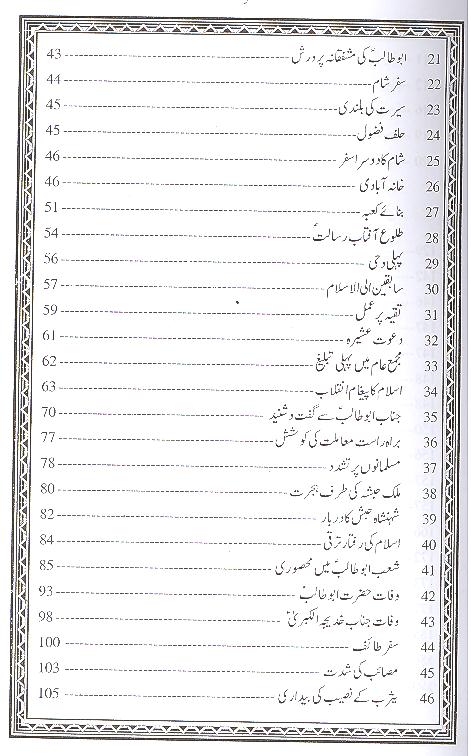 21 ابوطالبؑ کی مشفقانہ پرورش 43
22 سفر شام 44
23 سیرت کی بلندی 45
24 حلف فضول 45
25 شام کا دوسرا سفر 46
26 خانہ آبادی 46
27 بنائے کعبہ 51
28 طلوع آفتاب رسالتؐ 54
29 پہلی وحی 56
30 سابقین الی الاسلام 57
31 تقیہ پر عمل 59
32 دعوت عشیرہ 61
33 مجمع عام میں پہلی تبلیغ 62
34 اسلام کا پیغام انقلاب 63
35 جناب ابوطالبؑ سے گفت و شنید 70
36 براہ راست معاملت کی کوشش 77
37 مسلمانوں پر تشدد 78
38 ملک حبشہ کی طرف ہجرت 80
39 شہنشاہ حبش کا دربار 82
40 اسلام کی رفتار ترقی 84
41 شعب ابوطالبؑ میں محصوری 85
42 وفات حضرت ابوطالبؑ 93
43 وفات جناب خدیجۃ الکبریٰؑ 98
44 سفر طائف 100
45 مصائب کی شدت 103
46 یثرب کے نصیب کی بیداری 105